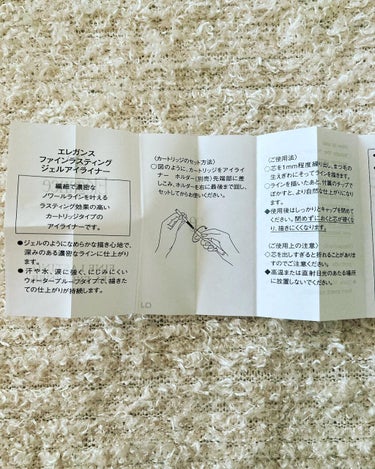 エレガンス
ファインラスティング
ジェルアイライナー
繊細で濃密な
ノワールラインを叶える
ラスティング効果の高い
カートリッジタイプの
アイライナーです。
●ジェルのようになめらかな描き心地で、
深みのある濃密なラインに仕上がり
ます。
●汗や水、涙に強く、にじみにくい
ウォータープルーフタイプで、描きた
ての仕上がりが持続します。
〈カートリッジのセット方法〉
○図のように、カートリッジをアイライ
ナー ホルダー(別売)先端部に差
しこみ、ホルダーを右に最後まで回し、
セットしてからお使いください。
〈ご使用法〉
○芯を1mm程度繰り出し、まつ毛の
生えぎわにそってラインを描きます。
○ラインを描いたあと、付属のチップで
ぼかすと、より自然な仕上がりになり
ます。
◆使用後はしっかりとキャップを閉めて
ください。閉めずにおくと芯が硬くな
り、描きにくくなります。
〈ご使用上の注意〉
○芯を出しすぎると折れることがあり
ますのでご注意ください。
◆高温または直射日光のあたる場所
に放置しないでください。